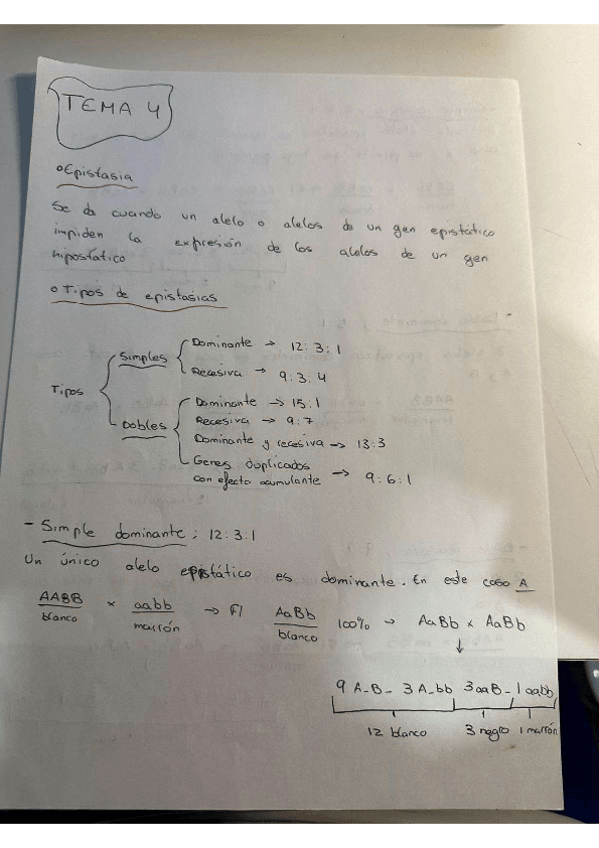 TEMA 4
o Epistasia
Se da cuando un alelo o alelos de un gen epistático
impiden la expresión de los alelos de un gen
hipostático
o Tipos de epistasias
Tipos
Simples
Dominante → 12:3:1
Recesiva → 9:3:4
Dobles
Dominante → 15:1
Recesiva → 9:7
Dominante y recesiva → 13:3
Genes duplicados
con efecto acumulante → 9:6:1
- Simple dominante: 12:3:1
Un único alelo epistático es dominante. En este caso A
AABB × aabb → F1 AaBb 100% → AaBb x AaBb
blanco marrón blanco
↓
9 A-B- 3A-bb 3aaB- 1aabb
12 blanco 3 negro 1 marrón